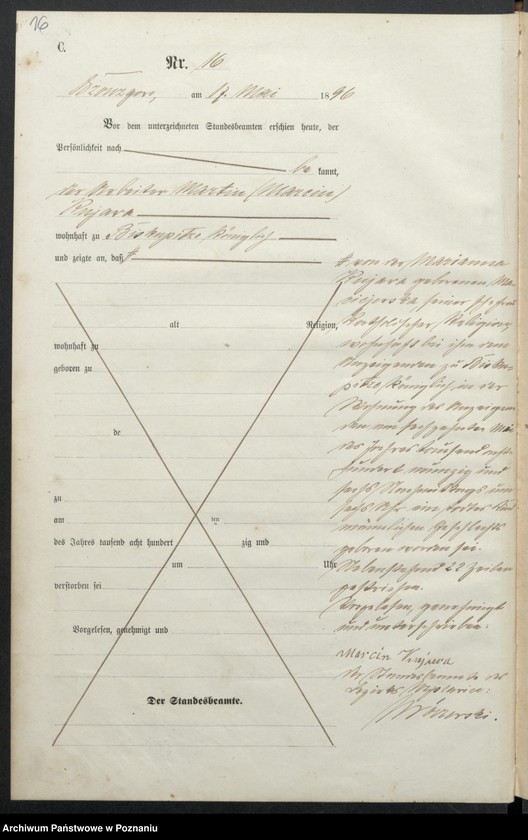 16
C.
Nr. 16
am 17. Mai 1896
Vor dem unterzeichneten Standesbeamten erschien heute, der
Persönlichkeit nach
be kannt,
der Arbeiter Martin (Marcin)
Kujawa
wohnhaft zu Biskupitze, Königlich
und zeigte an, daß
alt Religion,
wohnhaft zu
geboren zu
de
zu
am ten
des Jahres tausend acht hundert zig und
um Uhr
verstorben sei
Vorgelesen, genehmigt und
Der Standesbeamte.
von der Marianna
Kujawa geborenen Ma-
seiner Ehefrau
katholischer Religion,
wohnhaft bei ihm dem
Anzeigenden zu Bisku-
pitze Königlich in der
Wohnung des Anzeigen-
den am sechzehnten Mai
des Jahres tausend acht-
hundert neunzig und
sechs Nachmittags um
sechs Uhr ein todtes Kind
männlichen Geschlechts
geboren worden sei.
Nebenstehend 22 Zeilen
gestrichen.
Vorgelesen, genehmigt
und unterschrieben:
Marcin Kujawa
Der Standesbeamte des
Bezirks
Archiwum Państwowe w Poznaniu